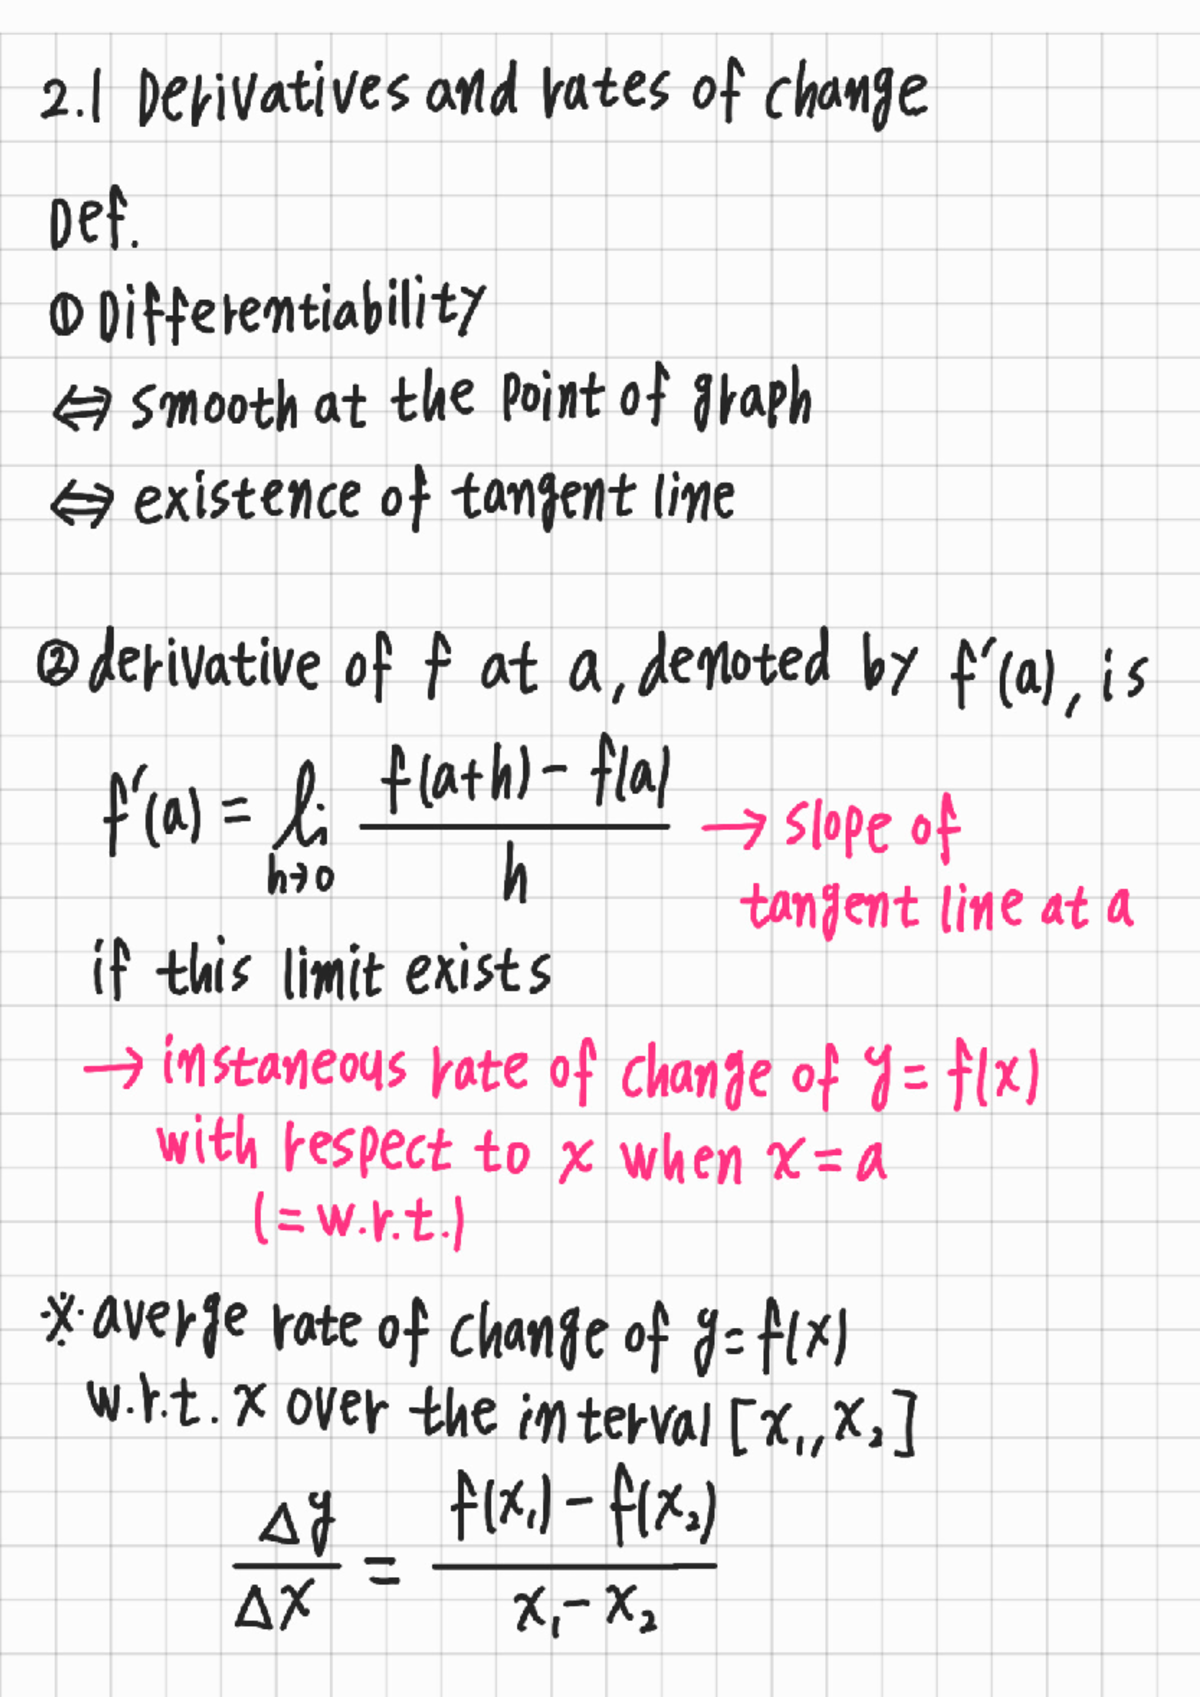 2.1 Derivatives and rates of change
Def.
① Differentiability
⇔ smooth at the point of graph
⇔ existence of tangent line
② derivative of f at a, denoted by f'(a), is
f'(a) = lim h→0 (f(a+h) - f(a)) / h → slope of
tangent line at a
if this limit exists
→ instaneous rate of change of y = f(x)
with respect to x when x = a
(= w.r.t.)
※ averge rate of change of y = f(x)
w.r.t. x over the interval [x₁, x₂]
Δy / Δx = (f(x₁) - f(x₂)) / (x₁ - x₂)